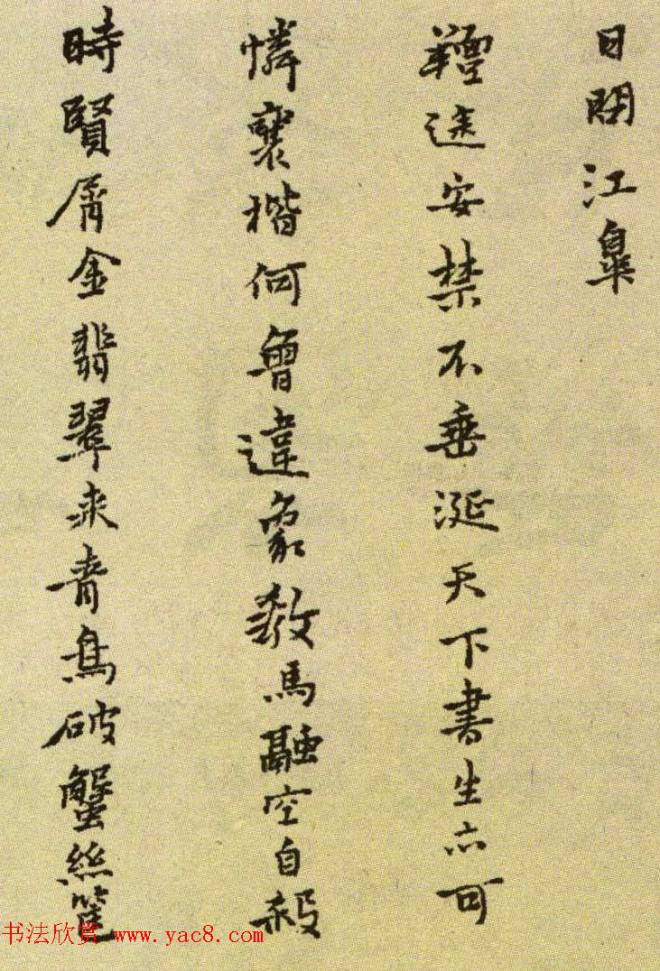 日閉江皋
途安禁不垂涎天下書生亦可
憐裹楷何曾違教馬融空自殺
時賢屑金翡翠来青鳥破蟹絲筐
书法欣赏 www.yac8.com